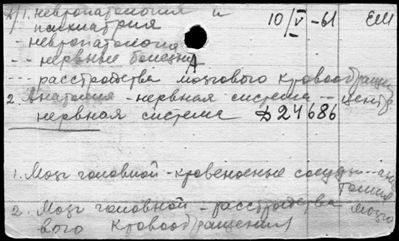 1. невропатология и 10/V-61 ЕШ
психиатрия
- невропатология
- - нервные болезни
- - - расстройства мозгового кровообращения
2. Анатомия - нервная система - центр.
нервная система Д24686
1. Мозг головной - кровеносные сосуды - ана
томия
2. Мозг головной - расстройства мозго
вого кровообращения